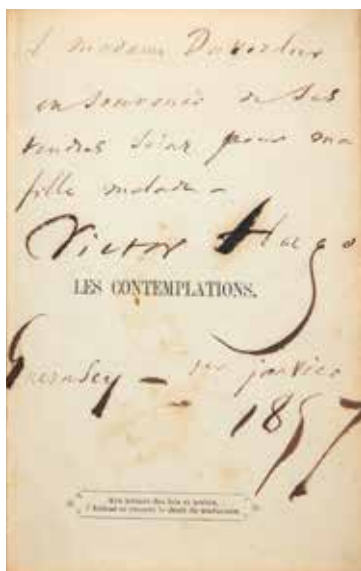 à madame
en souvenir de ses
tendres soins pour ma
fille malade —
Victor Hugo
LES CONTEMPLATIONS.
Guernesey — 1er janvier
1857
Aux termes des lois et traités,
l'Éditeur se réserve le droit de traduction.